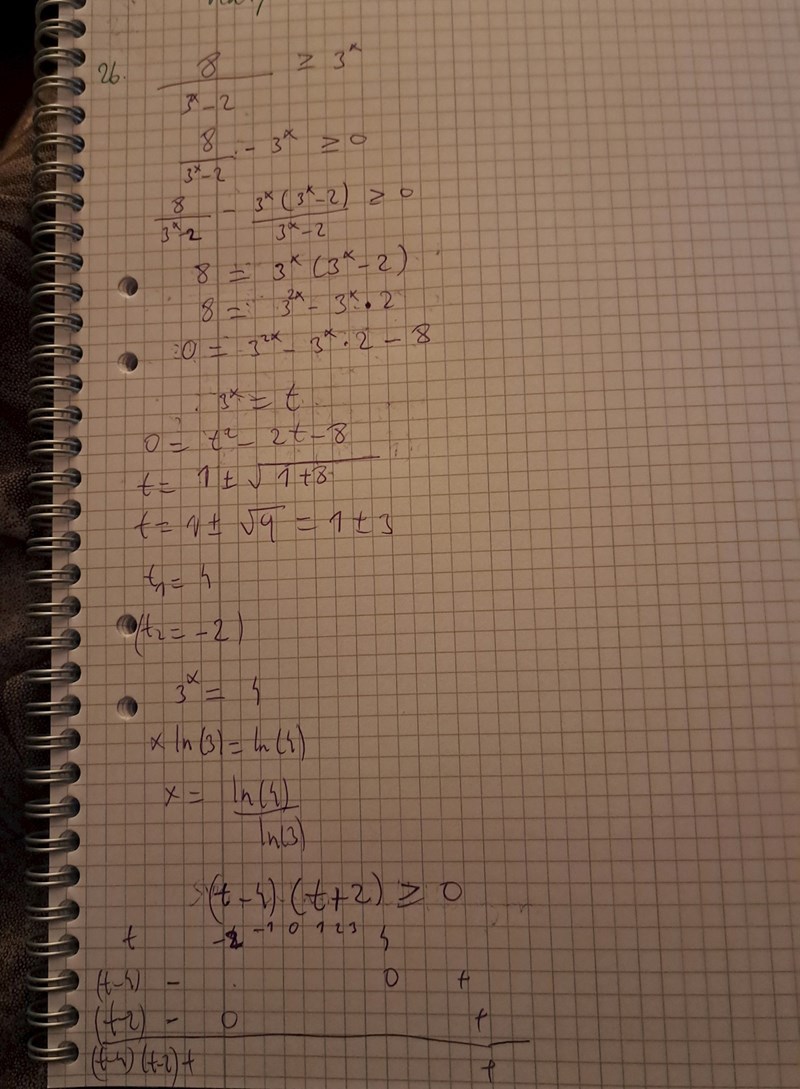 26. 8/(3^x-2) ≥ 3^x
8/(3^x-2) - 3^x ≥ 0
8/(3^x-2) - 3^x(3^x-2)/(3^x-2) ≥ 0
8 = 3^x(3^x-2)
8 = 3^2x - 3^x·2
0 = 3^2x - 3^x·2 - 8
3^x = t
0 = t² - 2t - 8
t = 1 ± √(1+8)
t = 1 ± √9 = 1 ± 3
t₁ = 4
(t₂ = -2)
3^x = 4
x ln(3) = ln(4)
x = ln(4)/ln(3)
(t-4)(t+2) ≥ 0
t -2 -1 0 1 2 3 4
(t-4) - 0 +
(t-2) - 0 +
(t-4)(t-2) + +